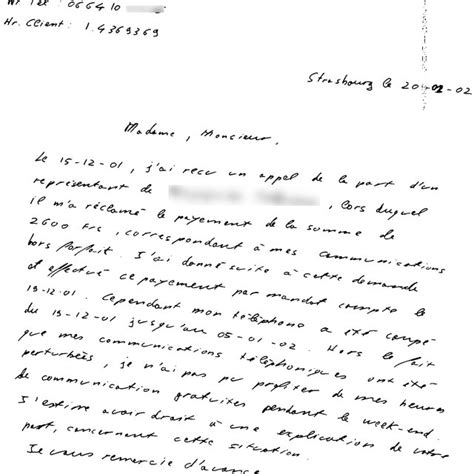 Nr Tel : 066410
Nr. Client : 1.4369369
Strasbourg le 20-02-02
Madame, Monsieur,
Le 15-12-01, j'ai recu un appel de la part d'un
représentant de , lors duquel
il m'a réclamé le payement de la somme de
2600 frs, correspondant à mes communications
hors forfait. J'ai donné suite à cette demande
et effectué ce payement par mandat compte le
19.12.01. Cependant mon téléphone a été coupé
du 19-12-01 jusqu'au 05-01-02. Hors le fait
que mes communications téléphoniques ont été
perturbées, je n'ai pas pu profiter de mes heures
de communication gratuites pendant le week-end.
J'estime avoir droit à une explication de votre
part, concernant cette situation.
Je vous remercie d'avance